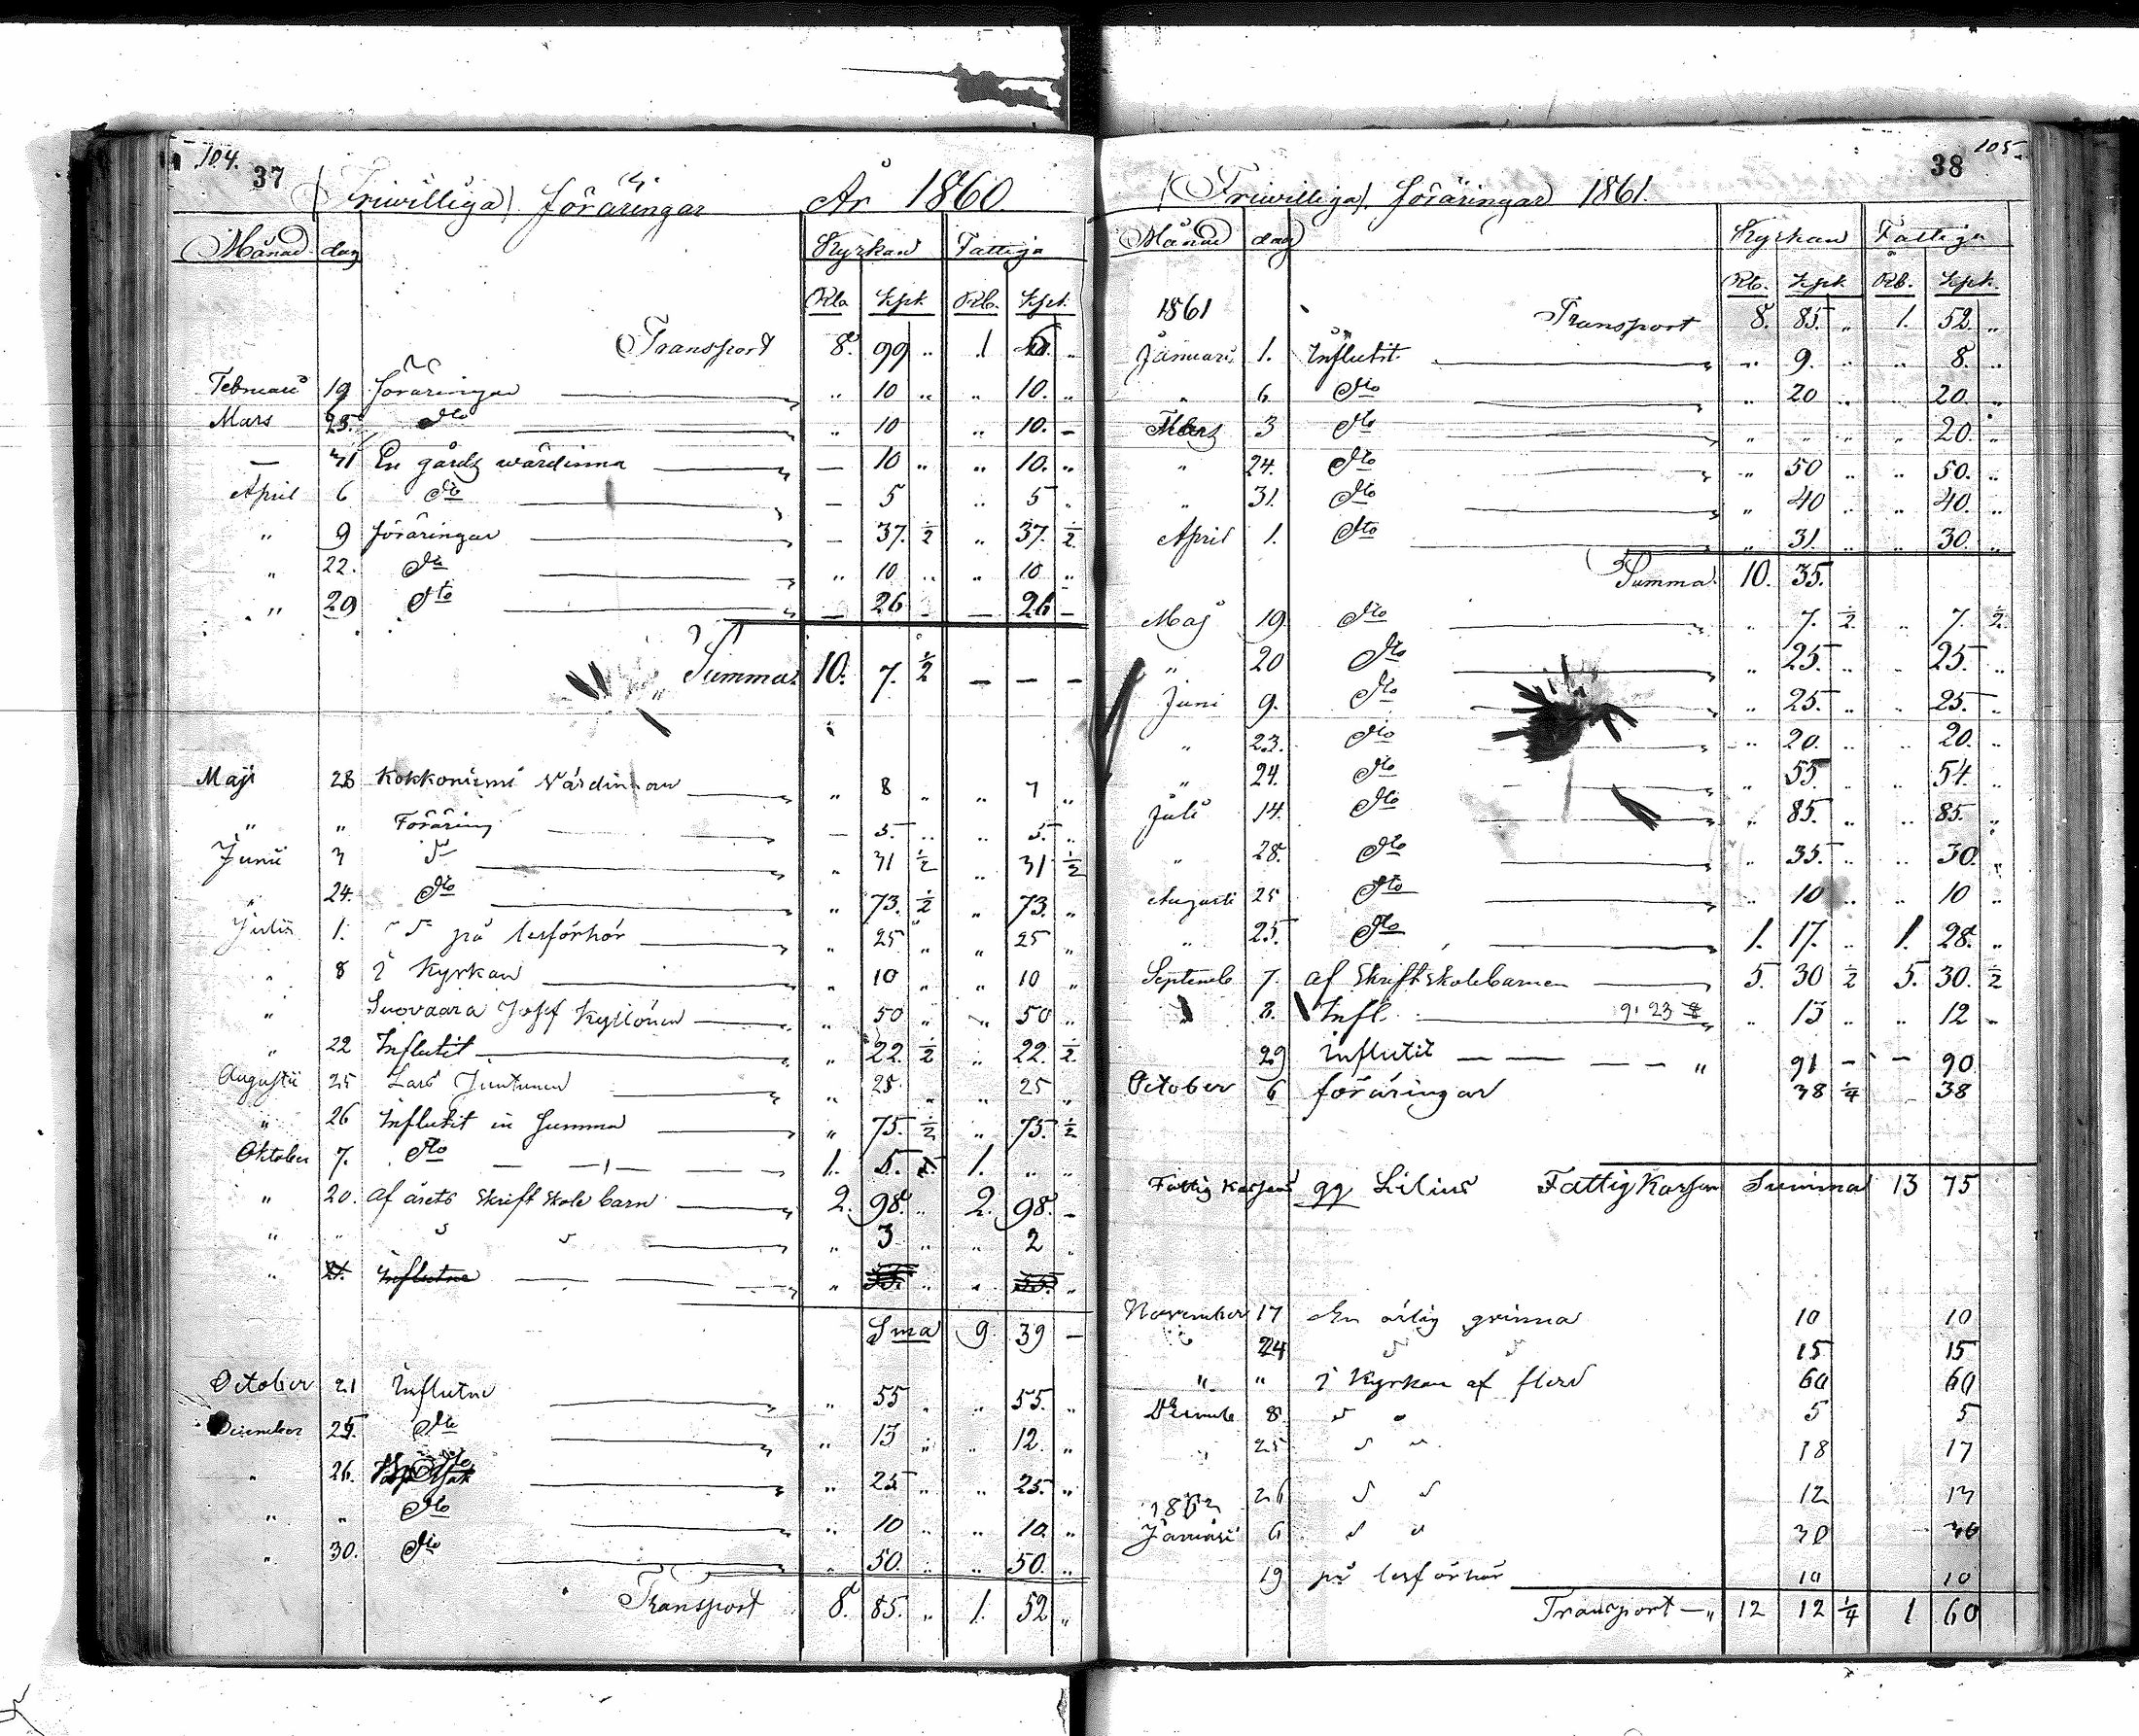 104.
37
Friwilliga föräringar År 1860.
Månad dag Kyrkan Fattiga
Rb. Kpk. Rb. Kpk.
Transport 8. 99 „ 1
Februari 19 föräringar „ 10 „ „ 10. „
Mars 25. dto „ 10 „ 10. –
— 31 En gårds wärdinna — 10 „ „ 10. „
April 6 dto — 5 „ 5 „
„ 9 föräringar — 37. ½ „ 37. ½
„ 22. dto „ 10 „ „ 10 „
„ 29 dto — 26 — 26 –
Summa 10. 7. ½ — — —
Maji 28 Kokkoniemi Värdinnan „ 8 „ „ 7 „
„ „ Föräring — 5. „ „ 5. „
Junii 3 „ 31 ½ „ 31 ½
„ 24. dto „ 73. ½ „ 73. „
Julii 1. på läsförhör „ 25 „ „ 25 „
„ 8 i Kyrkan „ 10 „ „ 10 „
„ Suovaara Josef Kyllönen „ 50 „ „ 50 „
„ 22 Influtit „ 22. ½ „ 22. ½
Augustii 25 Lars Juntunen „ 25. „ „ 25 „
„ 26 Influtit in Summa „ 75. ½ „ 75. ½
Oktober 7. dto 1. 5. 1. „ „
„ 20. af årets Skriftskolebarn 2. 98. „ 2. 98. –
„ „ „ 3 „ „ 2 „
„ 21. Influtne „ 55. „ „ 55. „
Sma 9 39 —
October 21 Influtne „ 55 „ „ 55. „
December 25. dto „ 13 „ „ 12. „
„ 26. „ 25 „ „ 25. „
„ „ dto „ 10 „ „ 10. „
„ 30. dto „ 50. „ „ 50. „
Transport 8. 85. „ 1. 52 „
105.
38
Friwilliga föräringar 1861.
Månad dag Kyrkan Fattiga
Rb. Kpk. Rb. Kpk.
1861 Transport 8. 85. „ 1. 52. „
Januari 1. Influtit. „ 9. „ „ 8. „
„ 6 dto „ 20 „ „ 20. „
Mars 3 dto „ „ „ „ 20. „
„ 24. dto „ 50 „ „ 50. „
„ 31. dto „ 40 „ „ 40. „
April 1. dto „ 31. „ „ 30. „
Summa. 10. 35.
Maj 19 dto „ 7. ½ „ 7. ½
„ 20 dto „ 25. „ „ 25. „
Juni 9. dto „ 25. „ „ 25. „
„ 23. dto „ 20. „ „ 20. „
„ 24. dto „ 55. „ „ 54. „
Juli 14. dto „ 85. „ „ 85. „
„ 28. dto „ 35. „ „ 30. „
Augusti 25 dto „ 10 „ „ 10 „
„ 25. dto 1. 17. „ 1. 28. „
Septemb 7. af Skriftskolebarnen 5. 30 ½ 5. 30. ½
8. Infl. 9. 23 „ 13 „ „ 12 „
29 influtit — — — — „ 91 – — 90
October 6 föräringar 38 ¼ 38
Fattig Kassans qq Lilius Fattig Kassan Summa 13 75
November 17 En ärlig qvinna 10 10
24 15 15
„ „ i Kyrkan af flere 60 60
Decemb 8. 5 5
„ 25 18 17
26 12 13
1862
Januari 6 30 30
19 på läsförhör 10 10
Transport — „ 12 12 ¼ 1 60